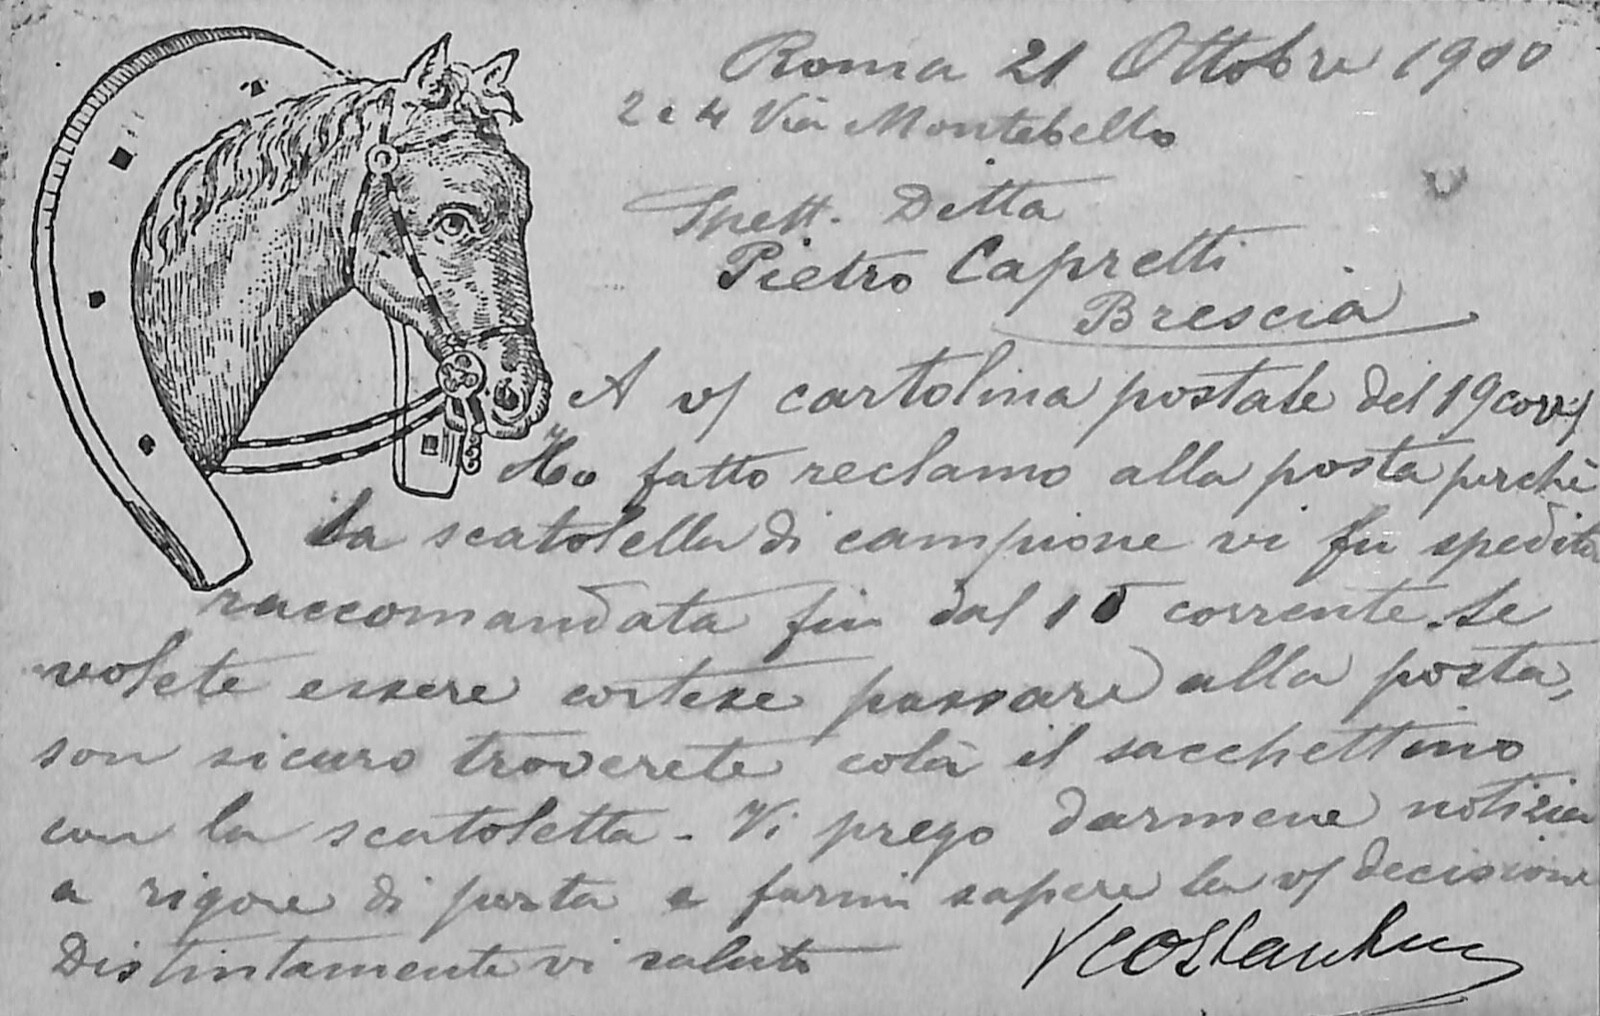 Roma 21 Ottobre 1900
2 e 4 Via Montebello
Spett. Ditta
Pietro Capretti
Brescia
A v/ cartolina postale del 19 corr/
Ho fatto reclamo alla posta perchè
la scatolella di campione vi fu spedita
raccomandata fin dal 15 corrente. Se
volete essere cortese passare alla posta,
son sicuro troverete colà il sacchettino
con la scatoletta - Vi prego darmene notizia
a rigore di posta e farmi sapere la v/ decisione
Distintamente vi saluto